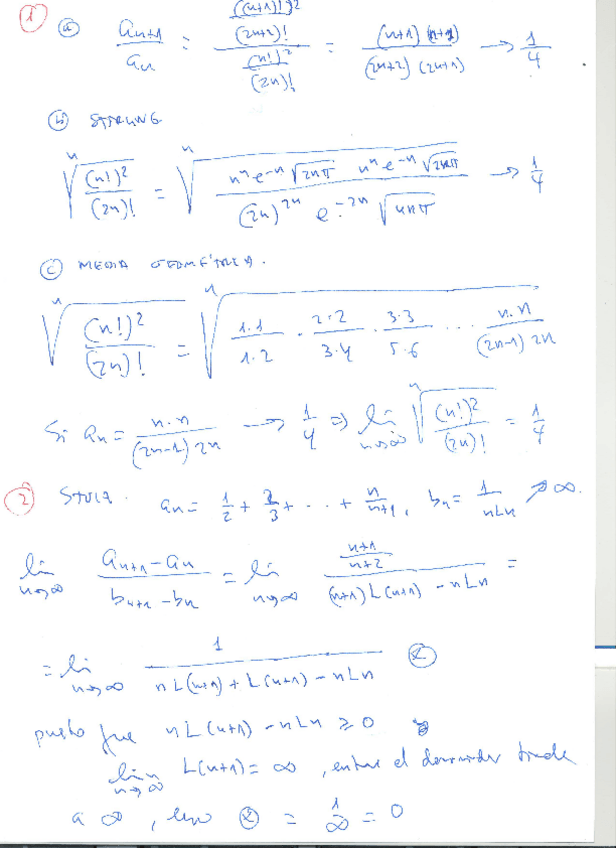 1 a) a_{n+1}/a_n = (((n+1)!)²/(2n+2)!)/((n!)²/(2n)!) = (n+1)(n+1)/((2n+2)(2n+1)) → 1/4
b) STIRLING
ⁿ√((n!)²/(2n)!) = ⁿ√((nⁿe⁻ⁿ√(2nπ) nⁿe⁻ⁿ√(2nπ))/((2n)²ⁿ e⁻²ⁿ √(4nπ))) → 1/4
c) MEDIA GEOMÉTRICA.
ⁿ√((n!)²/(2n)!) = ⁿ√((1·1)/(1·2) · (2·2)/(3·4) · (3·3)/(5·6) ··· (n·n)/((2n-1)2n))
Si a_n = n·n/((2n-1)2n) → 1/4 ⇒ lim_{n→∞} ⁿ√((n!)²/(2n)!) = 1/4
2 STOLZ. a_n = 1/2 + 2/3 + ... + n/(n+1), b_n = 1/(nLn) ↗∞.
lim_{n→∞} (a_{n+1} - a_n)/(b_{n+1} - b_n) = lim_{n→∞} ((n+1)/(n+2))/((n+1)L(n+1) - nLn) =
= lim_{n→∞} 1/(nL(n+1) + L(n+1) - nLn)
puesto que nL(n+1) - nLn ≥ 0 y
lim_{n→∞} L(n+1) = ∞, entonces el denominador tiende
a ∞, luego = 1/∞ = 0